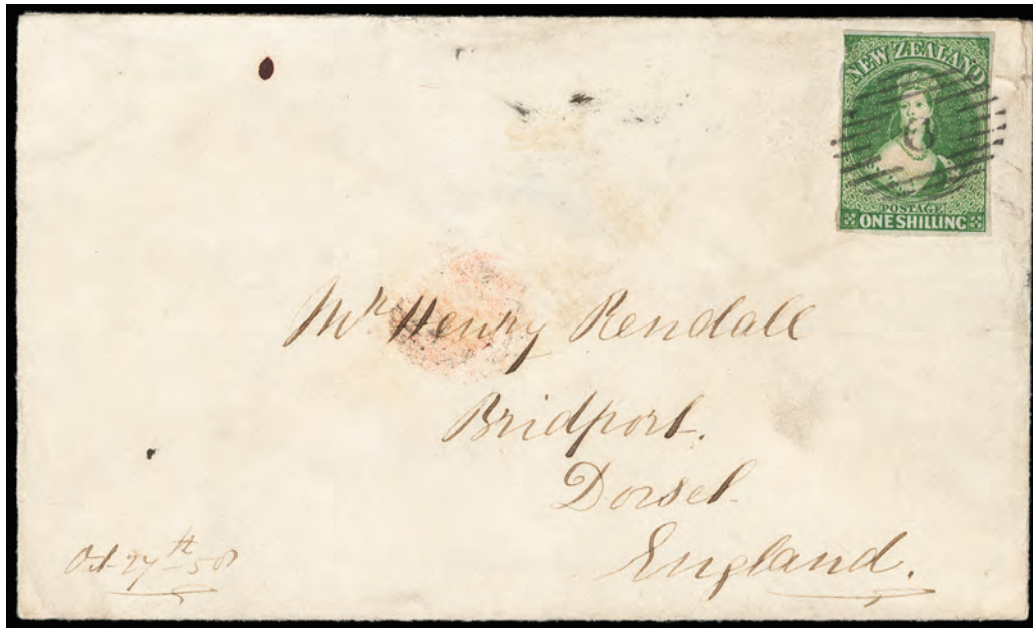 NEW ZEALAND
POSTAGE
ONE SHILLING
Mr Henry Rendall
Bridport.
Dorset
England.
Oct 27th 58